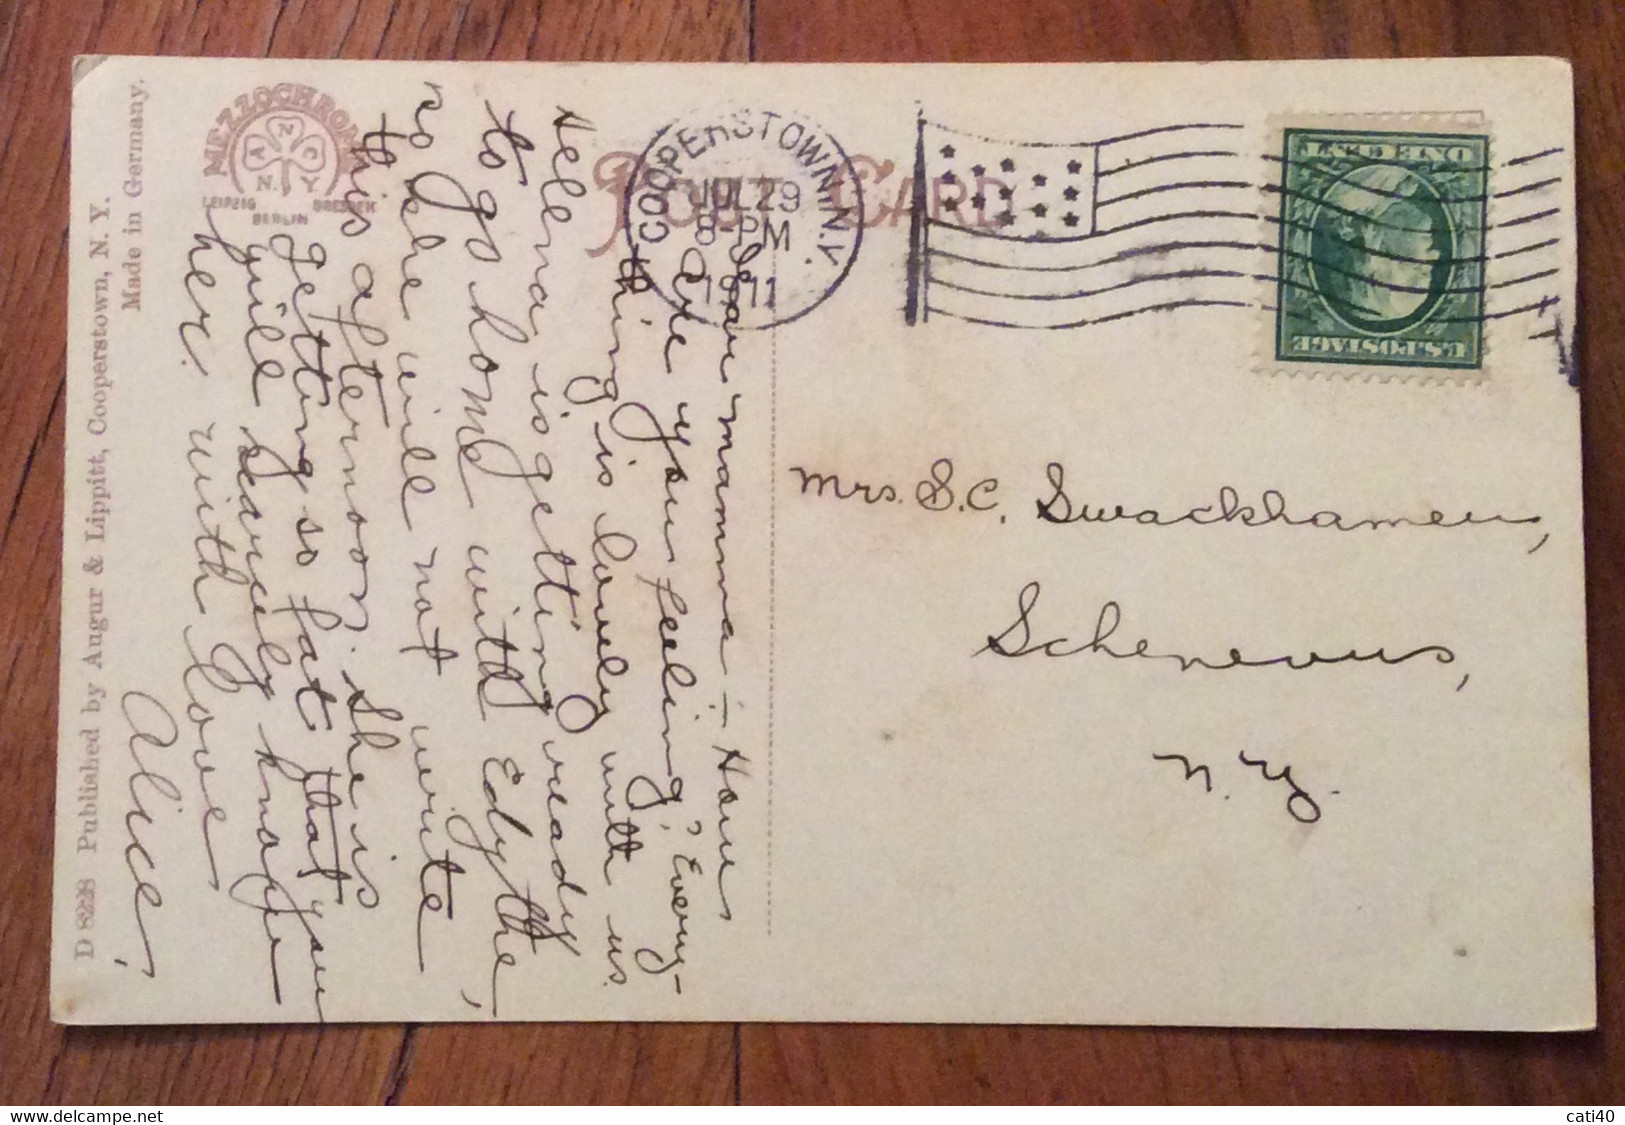 D 8228 Published by Augur & Lippitt, Cooperstown, N. Y.
Made in Germany.
MEZZOCHROME
A N C
N. Y
LEIPZIG BERLIN DRESDEN
POST CARD
COOPERSTOWN, N.Y.
JUL 29
8-PM
1911
U.S. POSTAGE
ONE CENT
Dear mamma :- How
are you feeling? Every-
thing is lovely with us.
Hellena is getting ready
to go home with Edythe,
so she will not write
this afternoon. She is
getting so fat that you
will scarcely know
her. with love
Alice,
Mrs. S.C. Swackhamer,
Schenevus,
N.Y.
cartes-postales-delcampe.net
cati40